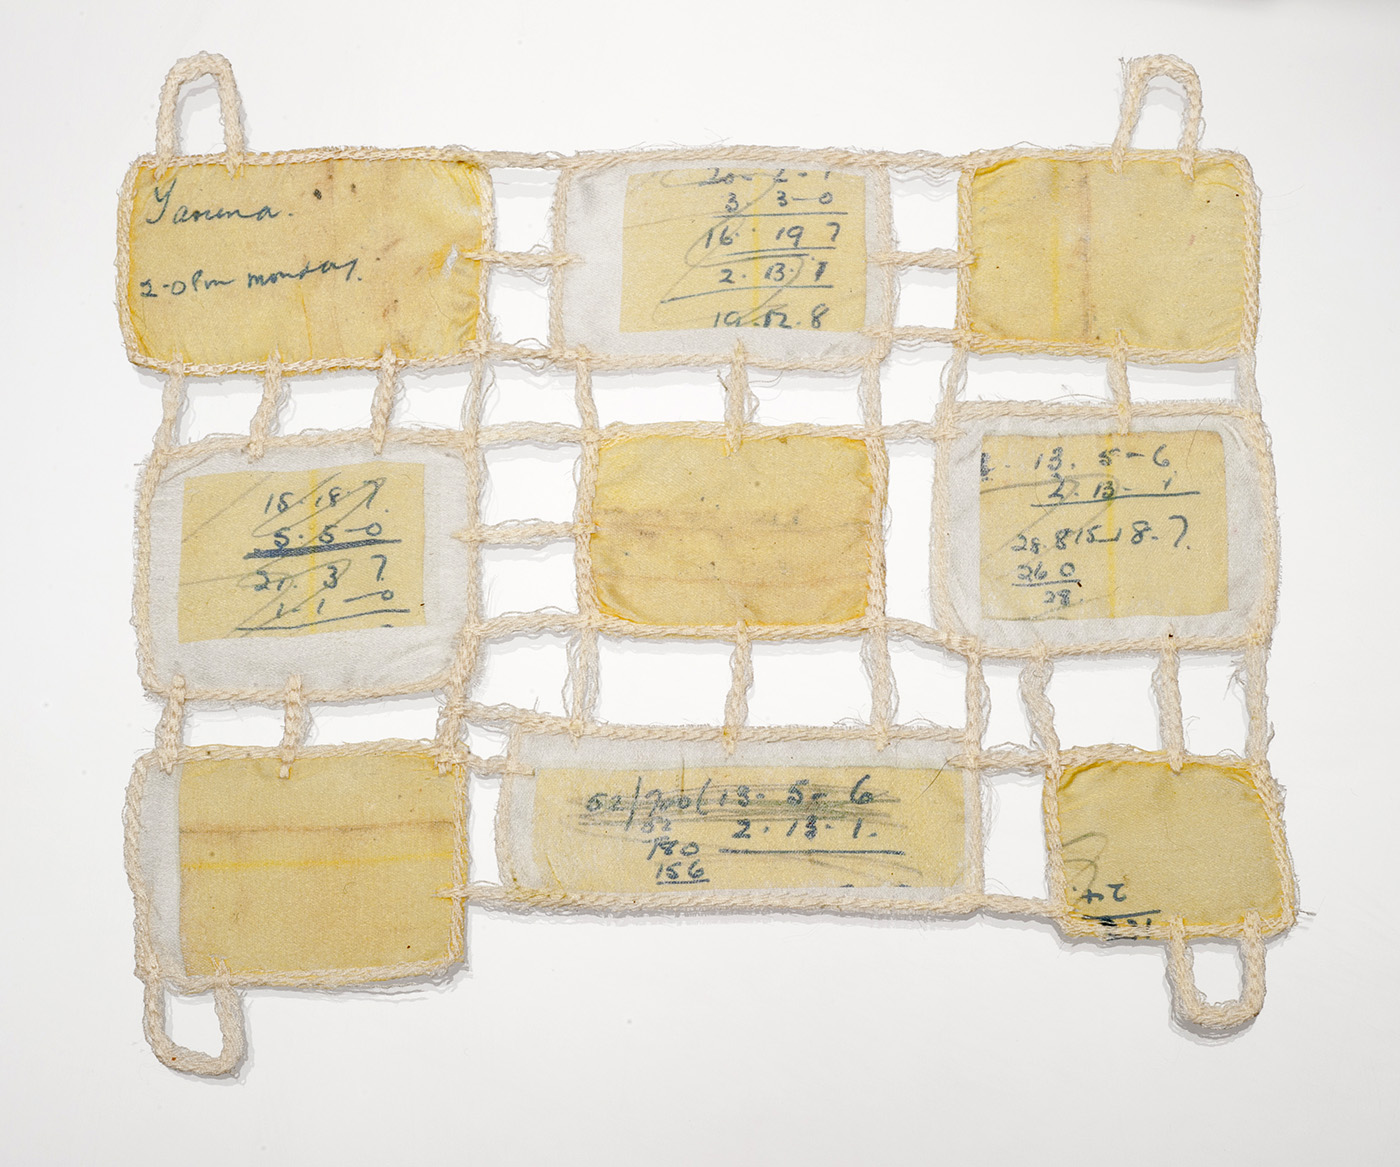 2-0 Pm monday.
3. 3-0
16. 19 7
2. 13. 1
19. 12. 8
18. 18 7.
5. 5-0
21. 3 7
1. 1-0
13. 5-6
2. 13-1
28.815-18-7.
26 0
28
52/700(13-5-6
52 2.13-1.
180
156
24.